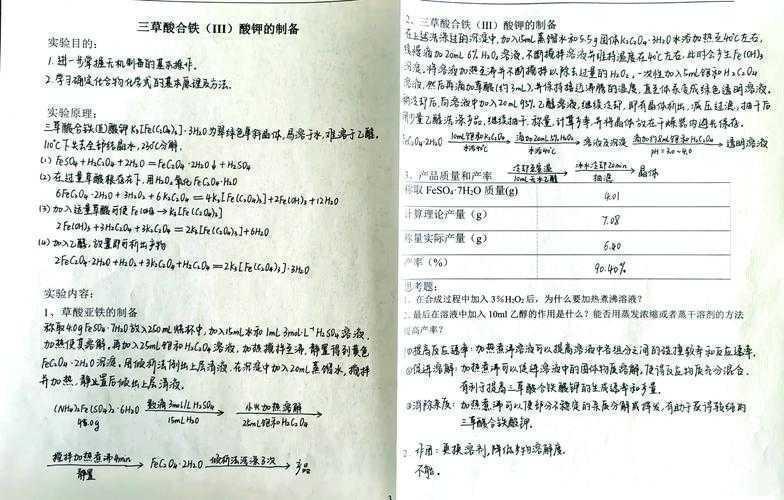 三草酸合铁（III）酸钾的制备
实验目的:
1. 进一步掌握无机制备的基本操作.
2. 学习确定化合物化学式的基本原理及方法.
实验原理:
三草酸合铁(Ⅲ)酸钾 K₃[Fe(C₂O₄)₃]·3H₂O为翠绿色单斜晶体, 易溶于水, 难溶于乙醇,
110℃下失去全部结晶水, 230℃分解.
(1) FeSO₄ + H₂C₂O₄ + 2H₂O = FeC₂O₄·2H₂O↓ + H₂SO₄
(2) 在过量草酸根存在下, 用H₂O₂氧化FeC₂O₄·H₂O
6FeC₂O₄·2H₂O + 3H₂O₂ + 6K₂C₂O₄ = 4K₃[Fe(C₂O₄)₃] + 2Fe(OH)₃ + 12H₂O
(3) 加入过量草酸可使 Fe(OH)₃ → K₃[Fe(C₂O₄)₃]
2Fe(OH)₃ + 3H₂C₂O₄ + 3K₂C₂O₄ = 2K₃[Fe(C₂O₄)₃] + 6H₂O
(4) 加入乙醇, 放置即可析出产物
2FeC₂O₄·2H₂O + H₂O₂ + 3K₂C₂O₄ + H₂C₂O₄ = 2K₃[Fe(C₂O₄)₃]·3H₂O
实验内容:
1、草酸亚铁的制备
称取4.0g FeSO₄·7H₂O放入250mL烧杯中, 加入15mL水和1mL 3mol·L⁻¹ H₂SO₄溶液,
加热使其溶解, 再加入25mL饱和H₂C₂O₄溶液, 加热搅拌至沸, 静置得到黄色
FeC₂O₄·2H₂O沉淀, 用倾析法倒出上层清液, 在沉淀中加入20mL蒸馏水, 搅拌
并加热, 静置后倾出上层清液.
(NH₄)₂Fe(SO₄)₂·6H₂O 数滴3mol/L H₂SO₄ 15mL H₂O → 小火加热溶解 25mL饱和H₂C₂O₄ →
搅拌加热煮沸4min 静置 → FeC₂O₄·2H₂O 倾析法洗涤3次 → 产品
2、三草酸合铁（III）酸钾的制备
在上述洗涤过的沉淀中, 加入15mL蒸馏水和5.5g固体K₂C₂O₄·3H₂O水浴加热至40℃左右,
滴加20mL 6% H₂O₂溶液, 不断搅拌溶液并维持温度在40℃左右, 此时会产生Fe(OH)₃
沉淀, 将溶液加热至沸并不断搅拌以除去过量的H₂O₂, 一次性加入5mL饱和H₂C₂O₄
溶液, 然后再滴加草酸(约3mL), 并保持接近沸腾的温度, 直至体系变成绿色透明溶液,
冷却后, 向溶液中加入20mL 95%乙醇溶液, 继续冷却, 即有晶体析出, 减压过滤, 抽干后
用少量乙醇洗涤产品, 继续抽干, 称量, 计算产率, 并将晶体放在干燥器内避光保存.
FeC₂O₄·2H₂O 10mL饱和K₂C₂O₄ 水浴40℃ → 滴加20mL 5% H₂O₂ 水浴40℃ → 溶液及沉淀 滴加约8mL饱和H₂C₂O₄ pH=3.0~4.0 → 透明溶液
冷却至室温 10mL无水乙醇 → 冰水冷却20min 抽滤 → 晶体
3、产品质量和产率
称取 FeSO₄·7H₂O 质量(g) 4.01
计算理论产量（g） 7.08
称量实际产量（g） 6.40
产率（%） 90.40%
思考题:
1. 在合成过程中加入 3%H₂O₂ 后，为什么要加热煮沸溶液？
2. 最后在溶液中加入 10ml 乙醇的作用是什么？能否用蒸发浓缩或者蒸干溶剂的方法
提高产率？
①提高反应速率: 加热煮沸溶液可以提高溶液中各组分之间的碰撞频率和反应速率.
②促进溶解: 加热煮沸可以促进溶液中的固体物质溶解, 使得反应物质充分混合,
有利于提高三草酸合铁酸钾的生成速率和产量.
③消除杂质: 加热煮沸可以使部分不稳定的杂质分解或挥发, 有助于获得较纯的
三草酸合铁酸钾.
2. 作用: 更换溶剂, 降低产物溶解度.
不能.